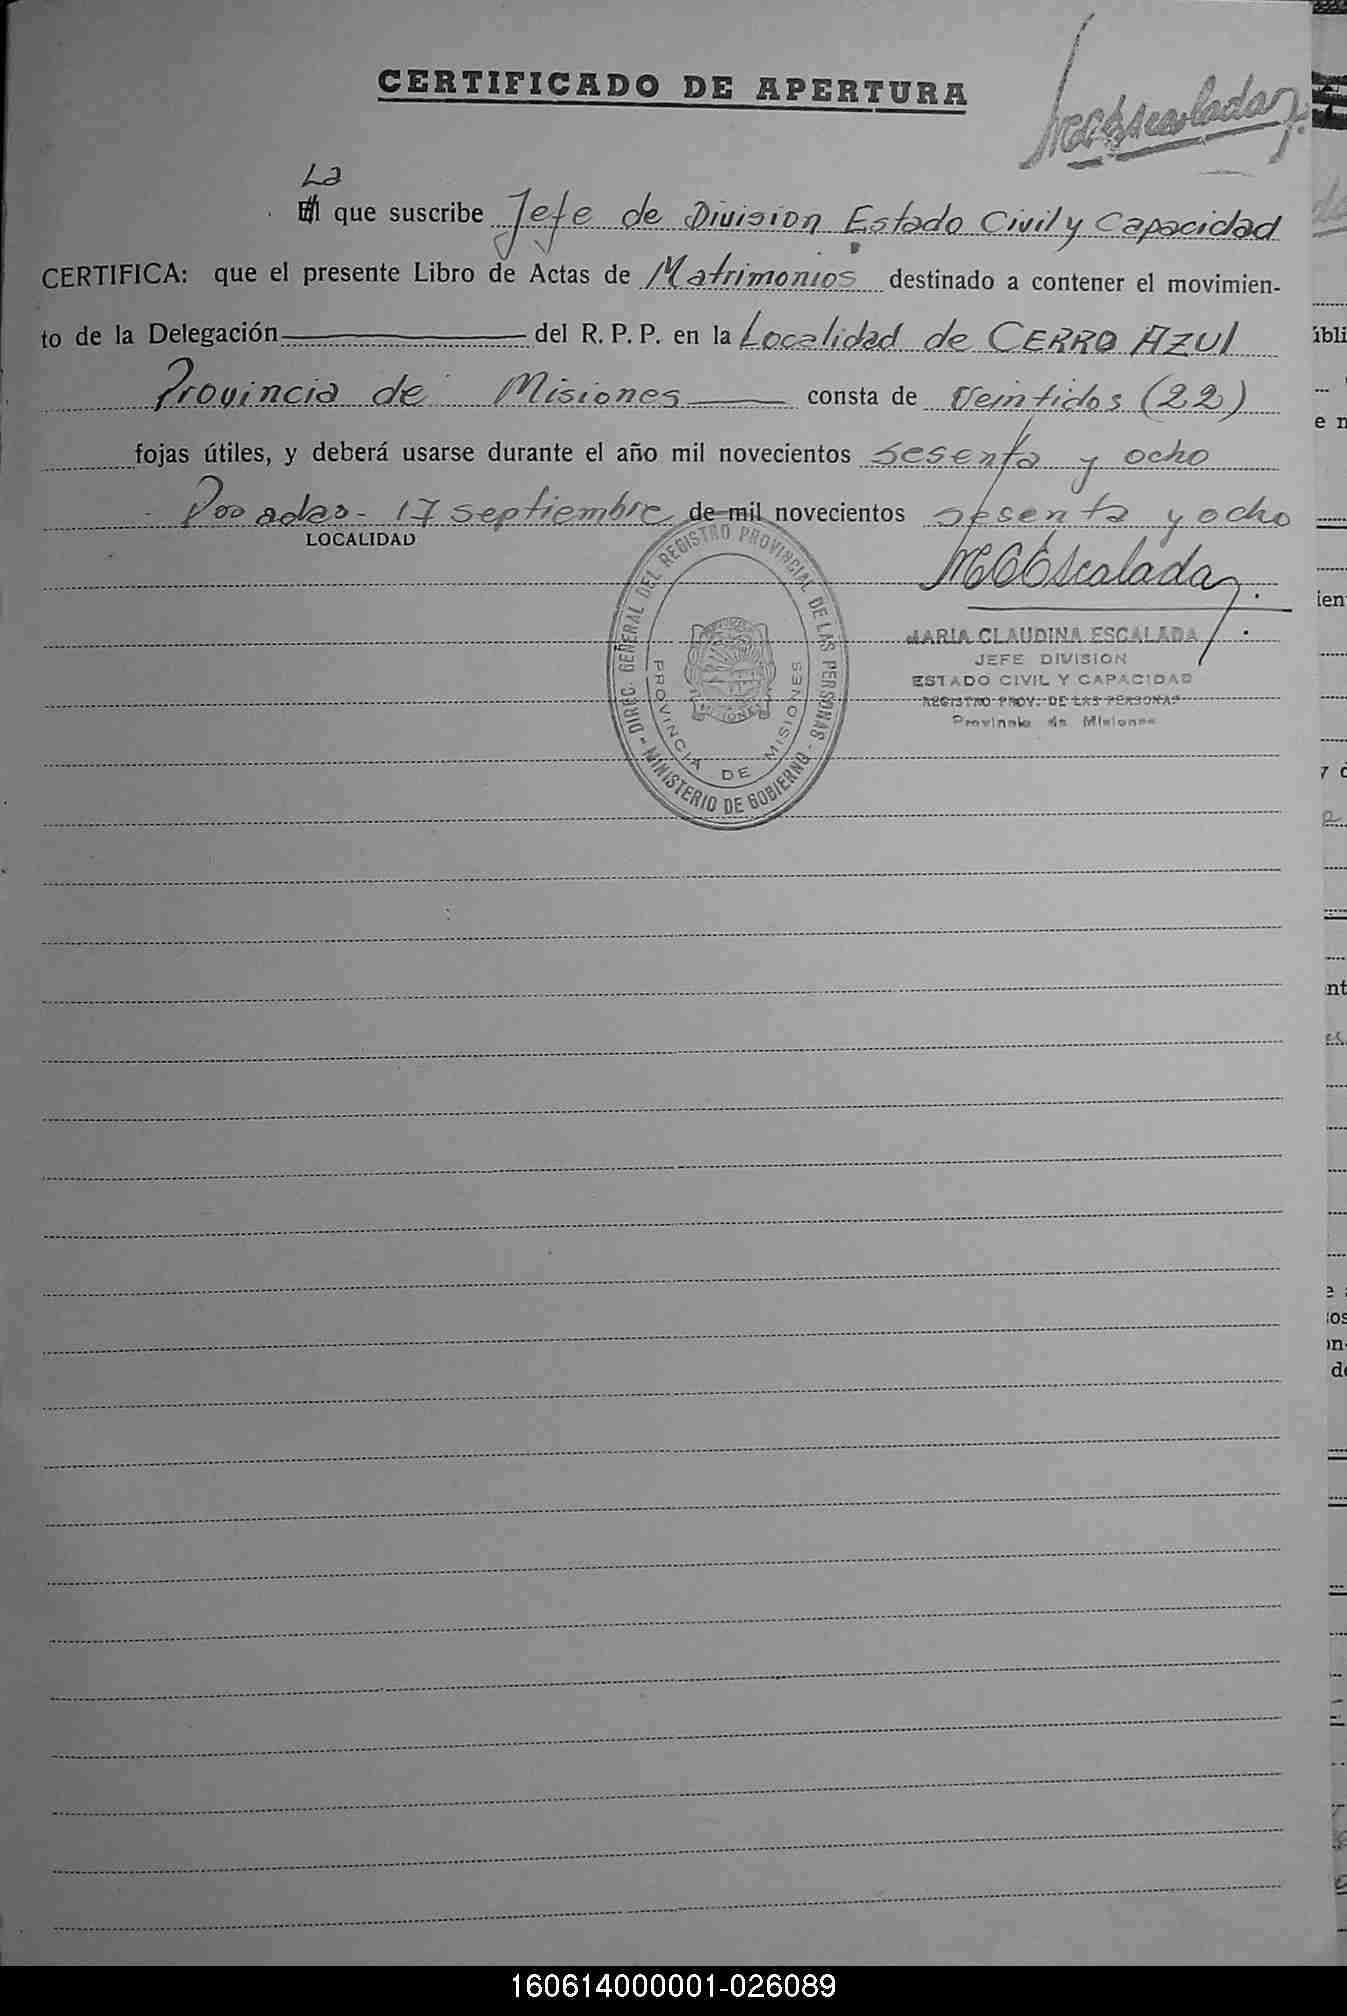 CERTIFICADO DE APERTURA
MCEscalada
La
El que suscribe Jefe de Division Estado Civil y Capacidad
CERTIFICA: que el presente Libro de Actas de Matrimonios destinado a contener el movimien-
to de la Delegación ——— del R. P. P. en la Localidad de CERRO AZUL
Provincia de Misiones —— consta de Veintidos (22)
fojas útiles, y deberá usarse durante el año mil novecientos sesenta y ocho
Posadas - 17 septiembre de mil novecientos sesenta y ocho
LOCALIDAD
MCEscalada
MARIA CLAUDINA ESCALADA
JEFE DIVISION
ESTADO CIVIL Y CAPACIDAD
REGISTRO PROV. DE LAS PERSONAS
Provincia de Misiones
DIREC. GENERAL DEL REGISTRO PROVINCIAL DE LAS PERSONAS - MINISTERIO DE GOBIERNO -
PROVINCIA DE MISIONES
MISIONES
160614000001-026089